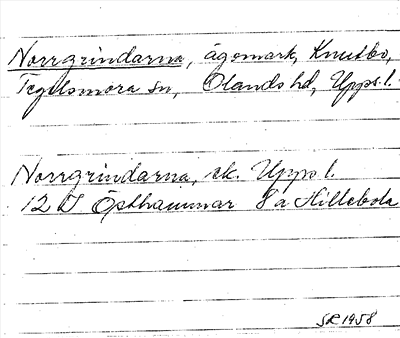 Norrgrindarna, ägomark, Knutbo,
Tegelsmora sn, Olands hd, Upps. l.
Norrgrindarna, ek. Upps l.
12 I Östhammar 8 a Hillebola
SR 1958